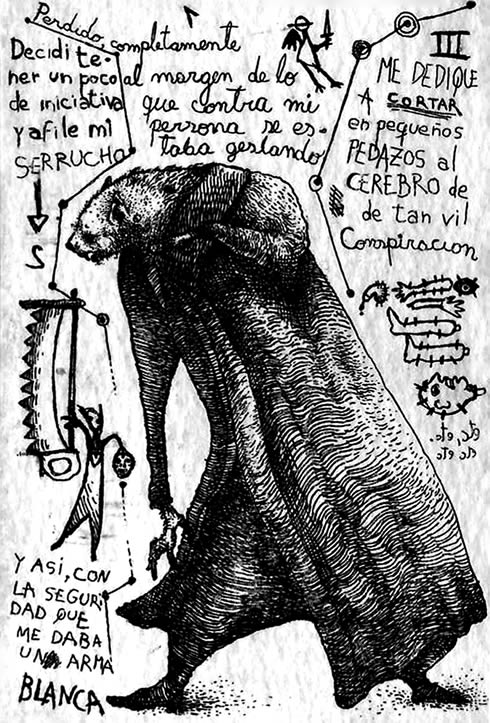 Perdido, completamente
al margen de lo
que contra mi
persona se es-
taba gestando
Decidi te-
ner un poco
de iniciativa
y afile mi
SERRUCHO
S
III
ME DEDIQUE
A CORTAR
en pequeños
PEDAZOS al
CEREBRO de
de tan vil
Conspiracion
etc, etc.
etc etc
Y ASI, CON
LA SEGURI
DAD QUE
ME DABA
UN ARMA
BLANCA